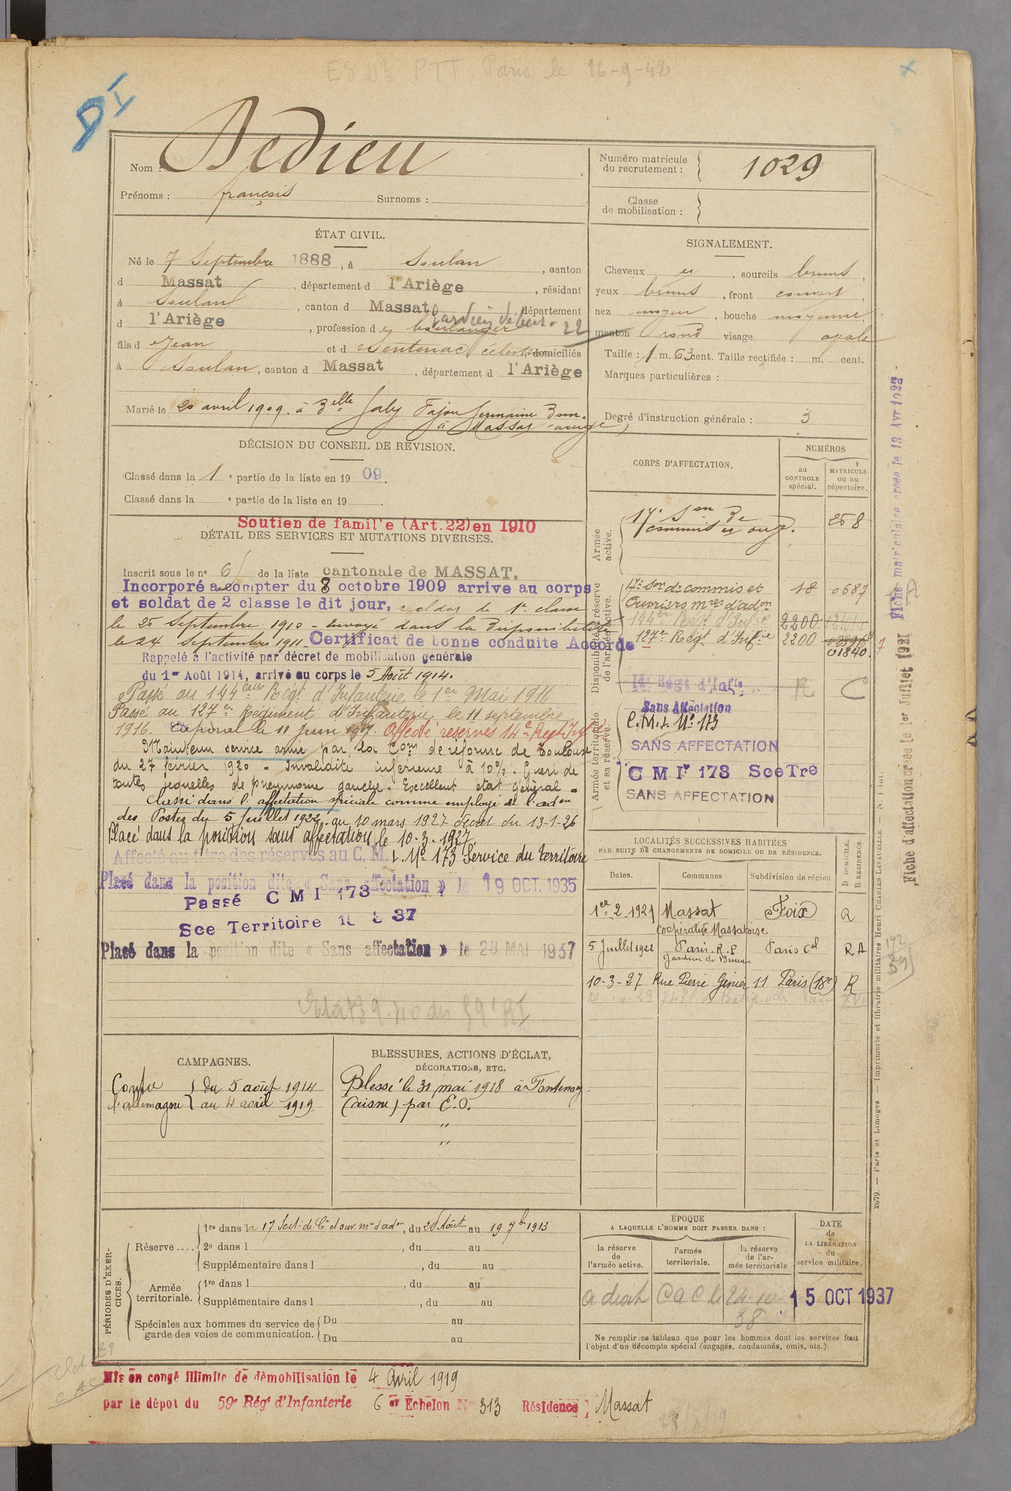 ES Dr PTT Paris le 16-9-42
DI
Nom : Dedieu
Prénoms : françois Surnoms :
Numéro matricule du recrutement : 1029
Classe de mobilisation :
ÉTAT CIVIL.
Né le 7 Septembre 1888, à Soulan, canton
d Massat, département d l'Ariège, résidant
à Soulan, canton d Massat, département
d l'Ariège, profession d boulanger
22
fils d Jean et d Sentenac domiciliés
à Soulan, canton d Massat, département d l'Ariège
Marié le 20 avril 1909 à Delle
à Massat
SIGNALEMENT.
Cheveux, sourcils bruns
yeux bruns, front couvert
nez moyen, bouche moyenne
menton rond visage ovale
Taille : 1 m. 63 cent. Taille rectifiée : m. cent.
Marques particulières :
Degré d'instruction générale : 3
DÉCISION DU CONSEIL DE RÉVISION.
Classé dans la 1e partie de la liste en 1909.
Classé dans la e partie de la liste en 19
Soutien de famille (Art.22) en 1910
DÉTAIL DES SERVICES ET MUTATIONS DIVERSES.
Inscrit sous le n° 6 de la liste cantonale de MASSAT.
Incorporé à compter du 8 octobre 1909 arrive au corps
et soldat de 2 classe le dit jour, soldat de 1e classe
le 25 Septembre 1910 - envoyé dans la Disponibilité
le 24 Septembre 1911. Certificat de bonne conduite Accordé
Rappelé à l'activité par décret de mobilisation générale
du 1er Août 1914, arrivé au corps le 5 Août 1914.
Passé au 144ème Régt d'Infanterie le 1er Mai 1916
Passé au 127e Régiment d'Infanterie, le 11 septembre
1916. Caporal le 11 juin 1917. Affecté réserves 14e Regt Inf
Maintenu service armé par la Con de réforme de Toulouse
du 27 février 1920 - Invalidité inférieure à 10%. Guéri de
toutes séquelles de pneumonie gauche. Excellent état général.
Classé dans l'affectation spéciale comme employé de l'adon
des Postes du 5 juillet 1922 au 10 mars 1927 décret du 13-1-26
Placé dans la position sans affectation le 10-3-1927
Affecté au titre des réserves au C. M. I. N° 173 Service du territoire
Placé dans la position dite « Sans affectation » le 19 OCT. 1935
Passé C M I 173
Sce Territoire
Placé dans la position dite « Sans affectation » le 28 MAI 1937
CORPS D'AFFECTATION.
NUMÉROS
au CONTROLE spécial.
MATRICULE ou au répertoire.
Armée active.
Disponibilité et réserve de l'armée active.
Armée territoriale et sa réserve.
17e Son de Commis et ouv. 258
17e Son de commis et Ouvriers mres d'adon 18 0687
144e Régt d'Infie 2200
127e Régt d'Infie 2200 01840
14e Régt d'Infie R C
Sans Affectation
C.M.I. N° 173
SANS AFFECTATION
C M Ir 173 Sce Tre
SANS AFFECTATION
LOCALITÉS SUCCESSIVES HABITÉES
PAR SUITE DE CHANGEMENTS DE DOMICILE OU DE RÉSIDENCE.
Dates. Communes Subdivision de région D DOMICILE. R RÉSIDENCE.
1er-2-1921 Massat Coopérative Massatoise Foix R
5 Juillet 1922 Paris - R. P. gardien de Bureau Paris Cal R A
10-3-27 Rue Pierre Ginier 11 Paris (18e) R
CAMPAGNES.
Contre l'allemagne du 5 août 1914
au 4 avril 1919
BLESSURES, ACTIONS D'ÉCLAT,
DÉCORATIONS, ETC.
Blessé le 31 mai 1918 à Fontenoy
(aisne) par E.O.
PÉRIODES D'EXERCICES.
Réserve.... 1re dans la 17 Sect. de Cis et ouv. mres d'adon, du 28 Août au 19 7bre 1913
2e dans l , du au
Supplémentaire dans l , du au
Armée territoriale. 1re dans l , du au
Supplémentaire dans l , du au
Spéciales aux hommes du service de garde des voies de communication. Du au
Du au
ÉPOQUE
A LAQUELLE L'HOMME DOIT PASSER DANS :
la réserve de l'armée active.
l'armée territoriale.
la réserve de l'armée territoriale
DATE de LA LIBÉRATION du service militaire.
15 OCT 1937
Ne remplir ce tableau que pour les hommes dont les services font l'objet d'un décompte spécial (engagés, condamnés, omis, etc.)
Mis en congé illimité de démobilisation le 4 Avril 1919
par le dépot du 59e Régt d'Infanterie 6er Echelon N° 313 Résidence Massat
Fiche matriculaire créée le 13 Avr 1922
Fiche d'affectation créée le 1er Juillet 1921
Paris et Limoges. — Imprimerie et librairie militaires Henri CHARLES-LAVAUZELLE.